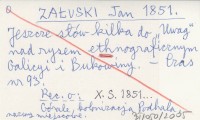 ZAŁUSKI Jan 1851.
Jeszcze słów kilka do „Uwag"
nad rysem ethnograficznym
Galicyi i Bukowiny. – Czas
nr 93.
Rec.: o: X.S. 1851...
Górale, kolonizacja Podhala
nazwy miejscowe.